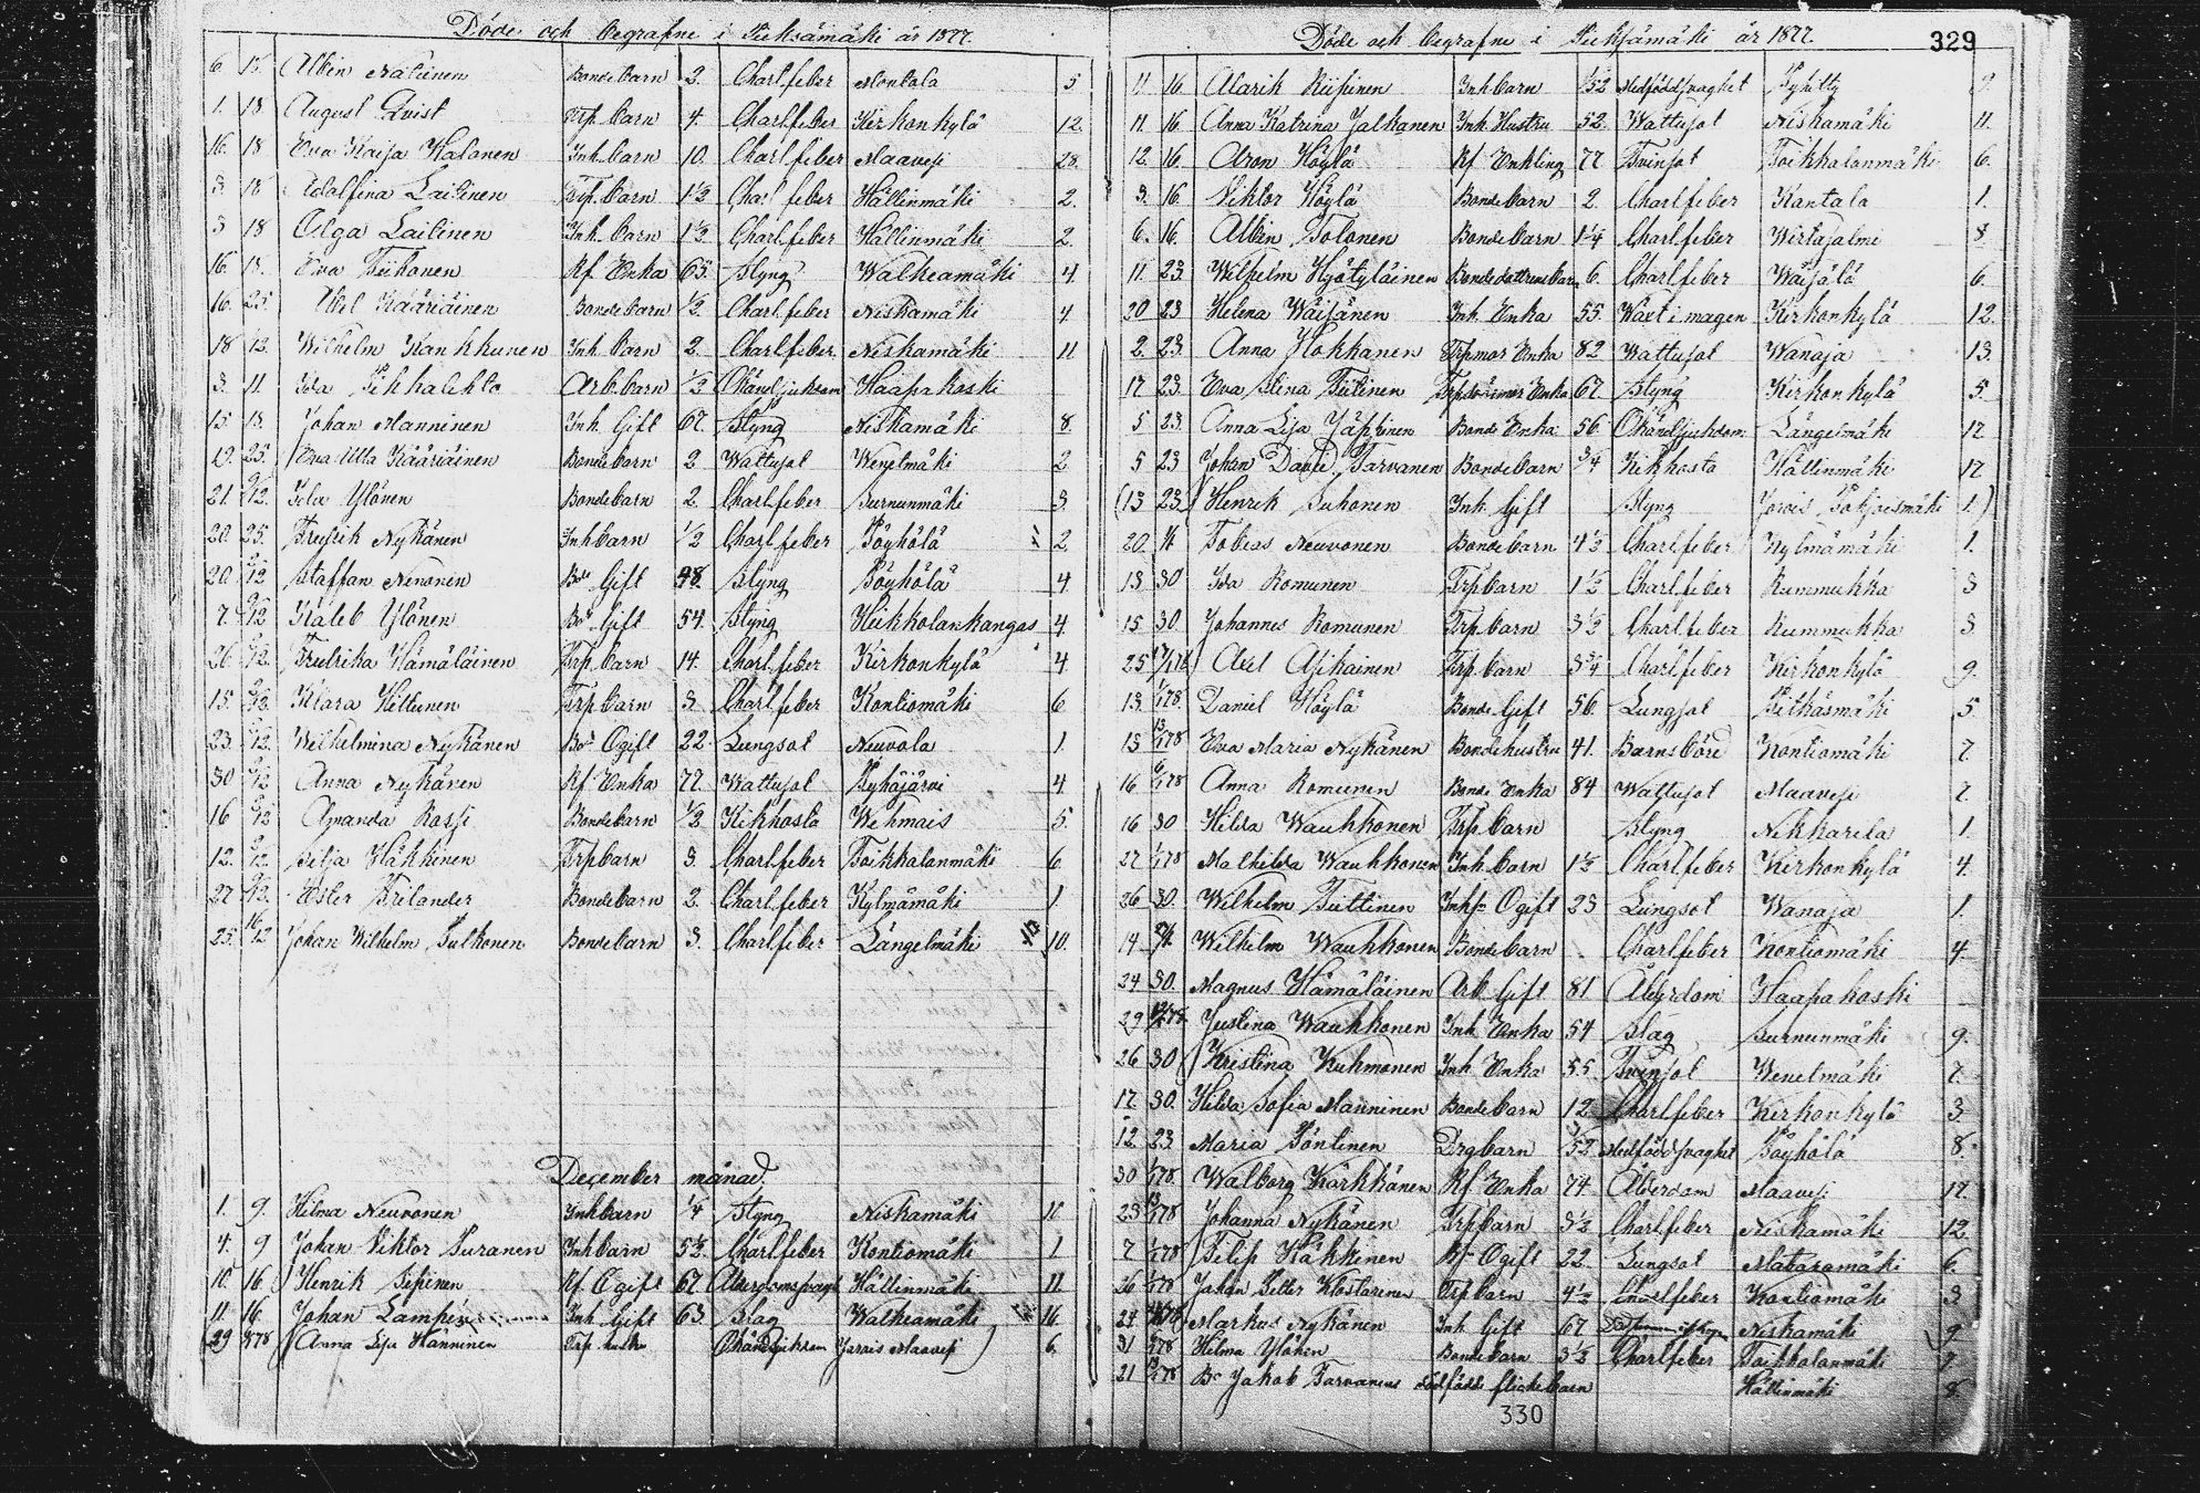 Döde och begrafne i Pieksämäki år 1877.
6. 18. Albin Nätiinen Bondebarn 2. Charl.feber Montola 5
1. 18 August Qvist Trp. barn 4. Charl.feber Kirkonkylä 12.
16. 18 Eva Kaisa Halonen Inh. barn 10. Charl.feber Maavesi 28.
3 18 Adolfina Laitinen Trp. barn 1½ Charl.feber Hällinmäki 2.
3 18 Olga Laitinen Inh. barn 1½ Charl.feber Hällinmäki 2.
16. 18. Eva Tiihonen Rf. Enka 65. Styng Walkeamäki 4.
16. 25 Axel Kääriäinen Bondebarn ½. Charl.feber Niskamäki 4.
18 Wilhelm Kankkunen Inh. barn 2. Charl.feber Niskamäki 11
3. 11. Ida Pihkalehto Arb. barn ½ Okänd sjukdom Haapakoski
15. 18. Johan Manninen Inh. Gift 67. Styng Niskamäki 8.
19. 25. Eva Ulla Kääriäinen Bondebarn 2 Wattusot Wenetmäki 2
21. 9/12 Ida Ylönen Bondebarn 2. Charl.feber Surnunmäki 3.
20. 25. Fredrik Nykänen Inhbarn ½ Charl.feber Pöyhölä 2
20. 2/12 Staffan Nenonen Bde Gift 48. Styng Pöyhölä 4
7. 2/12 Kaleb Ylönen Bde Gift 54. Styng Hiekkolankangas 4.
26 2/12. Fredrika Hämäläinen Trp. barn 14. Charl.feber Kirkonkylä 4
15. 2/12. Klara Hiltunen Trp. barn 3 Charl.feber Kontiomäki 6
23. 2/12. Wilhelmina Nykänen Bde Ogift 22. Lungsot Neuvola 1.
30 2/12 Anna Nykänen Rf. Enka 77. Wattusot Pyhäjärvi 4
16 2/12 Amanda Rossi Bondebarn ½ Kikhosta Wehmais 5.
12. 2/12. Silja Häkkinen Trpbarn 3. Charl.feber Toikkalanmäki 6
27 9/12. Ester Frilander Bondebarn 2. Charl.feber Kylmämäki 1
25. 16/12 Johan Wilhelm Pulkonen Bondebarn 3. Charl.feber Längelmäki 10.
December månad
1. 9. Hilma Neuvonen Inhbarn ¼ Styng Niskamäki 10
4. 9 Johan Viktor Puranen Inhbarn 5½. Charl.feber Kontiomäki 1
10. 16. Henrik Sepinen Rf. Ogift 67. Hällinmäki 11.
11. 16. Johan Lampén Inh. Gift 63. Slag Walkeamäki 16.
(29 Anna Lisa Hänninen Trp. Okänd sjukdom Jorois Maavesi) 6.
Döde och begrafne i Pieksämäki år 1877. 329
11 16. Alarik Riipinen Inhbarn 1/52 Medföddsvaghet Pyhitty 9.
11. 16. Anna Katrina Jalkanen Inh. Hustru 52. Wattusot Niskamäki 11.
12. 16. Aron Höylä Rf Enkling 77 Tvinsot Toikkalanmäki 6.
3. 16. Viktor Höylä Bondebarn 2. Charl.feber Kantala 1.
6. 16. Albin Tolonen Bondebarn 1¼ Charl.feber Wirtasalmi 8
11. 23. Wilhelm Hyötyläinen Bondedottrens barn 6. Charl.feber Wäisälä 6.
20 23 Helena Wäisänen Inh. Enka 55. Wäxt i magen Kirkonkylä 12.
2. 23. Anna Hokkanen Trpmor Enka 82 Wattusot Wanaja 13.
17 23. Eva Stina Tiitinen Enka 67. Styng Kirkonkylä 5
5 23. Anna Lisa Jäppinen Bonde Enka 56. Okänd sjukdom Längelmäki 17
5 23 Johan David Tarvanen Bondebarn ¾ Kikhosta Hällinmäki 17
(13 23. Henrik Suhonen Inh. Gift Styng Jorois Pohjoismäki 1.)
20. Tobias Neuvonen Bondebarn 4½ Charl.feber Kylmämäki 1.
13 30 Ida Romunen Trpbarn 1½ Charl.feber Kummukka 3
15 30. Johannes Romunen Trp. barn 3½ Charl.feber Kummukka 3.
25 Axel Asikainen Trp barn 3¾ Charl.feber Kirkonkylä 9.
13. 1/178. Daniel Höylä Bonde Gift 56. Lungsot Pitkäsmäki 5.
13 13/178 Eva Maria Nykänen Bondehustru 41. Barnsbörd Kontiomäki 7.
16 6/178 Anna Romunen Bonde Enka 84 Wattusot Maavesi 7.
16 30 Hilda Wauhkonen Trp. barn Styng Nikkarila 1.
27 1/178 Mathilda Wauhkonen Inh. barn 1½ Charl.feber Kirkonkylä 4.
26 30. Wilhelm Tuttinen Ogift 23 Lungsot Wanaja 1.
14 Wilhelm Wauhkonen Bondebarn Charl.feber Kontiomäki 4.
24 30. Magnus Hämäläinen Arb. Gift 81 Ålderdom Haapakoski
29 Justina Wauhkonen Inh. Enka 54 Slag Surnunmäki 9.
26 30 Kristina Kuhmonen Inh. Enka 55. Tvinsot Wenetmäki 7.
17. 30. Hilda Sofia Manninen Bondebarn 12 Charl.feber Kirkonkylä 3
12. 23. Maria Pöntinen Drgbarn 3/52 Medföddsvaghet Pöyhölä 8.
30 1/178. Walborg Kärkkänen Rf. Enka 74. Ålderdom Maavesi 17.
23 13/178 Johanna Nykänen Trpbarn 3½ Charl.feber Niskamäki 12
7 1/178 Filip Häkkinen Ogift 22. Lungsot Mataramäki 6.
26 Johan Petter Klostarinen Trp barn 4½ Charl.feber Kontiomäki 3
24 Markus Nykänen Inh Gift 67 Niskamäki 9
31 Hilma Ylönen Bondebarn 3½ Charl.feber Toikkalanmäki 7.
21 Bd Jakob Tarvanens dödfödde flickebarn Hällinmäki 8
330